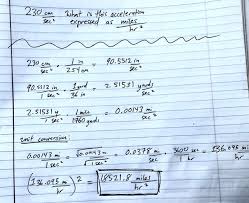 230 cm/sec² What is this acceleration expressed as miles/hr²
230 cm/sec² · 1 in/2.54 cm = 90.5512 in/sec²
90.5512 in/sec² · 1 yard/36 in = 2.51531 yards/sec²
2.51531 y/sec² · 1 mile/1760 yards = 0.00143 m/sec²
unit conversion:
0.00143 m/1 sec² = √0.00143 m/√1 sec² = 0.0378 m/sec · 3600 sec/1 hr = 136.095 m/hr
(136.095 m/hr)² = 18521.8 miles/hr²